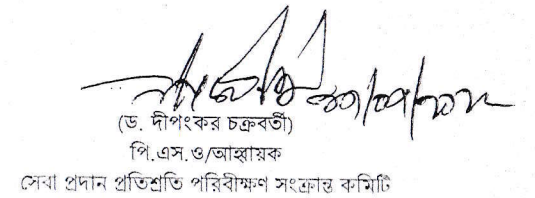 (ড. দীপংকর চক্রবর্তী)
পি.এস.ও/আহ্বায়ক
সেবা প্রদান প্রতিশ্রুতি পরিবীক্ষণ সংক্রান্ত কমিটি